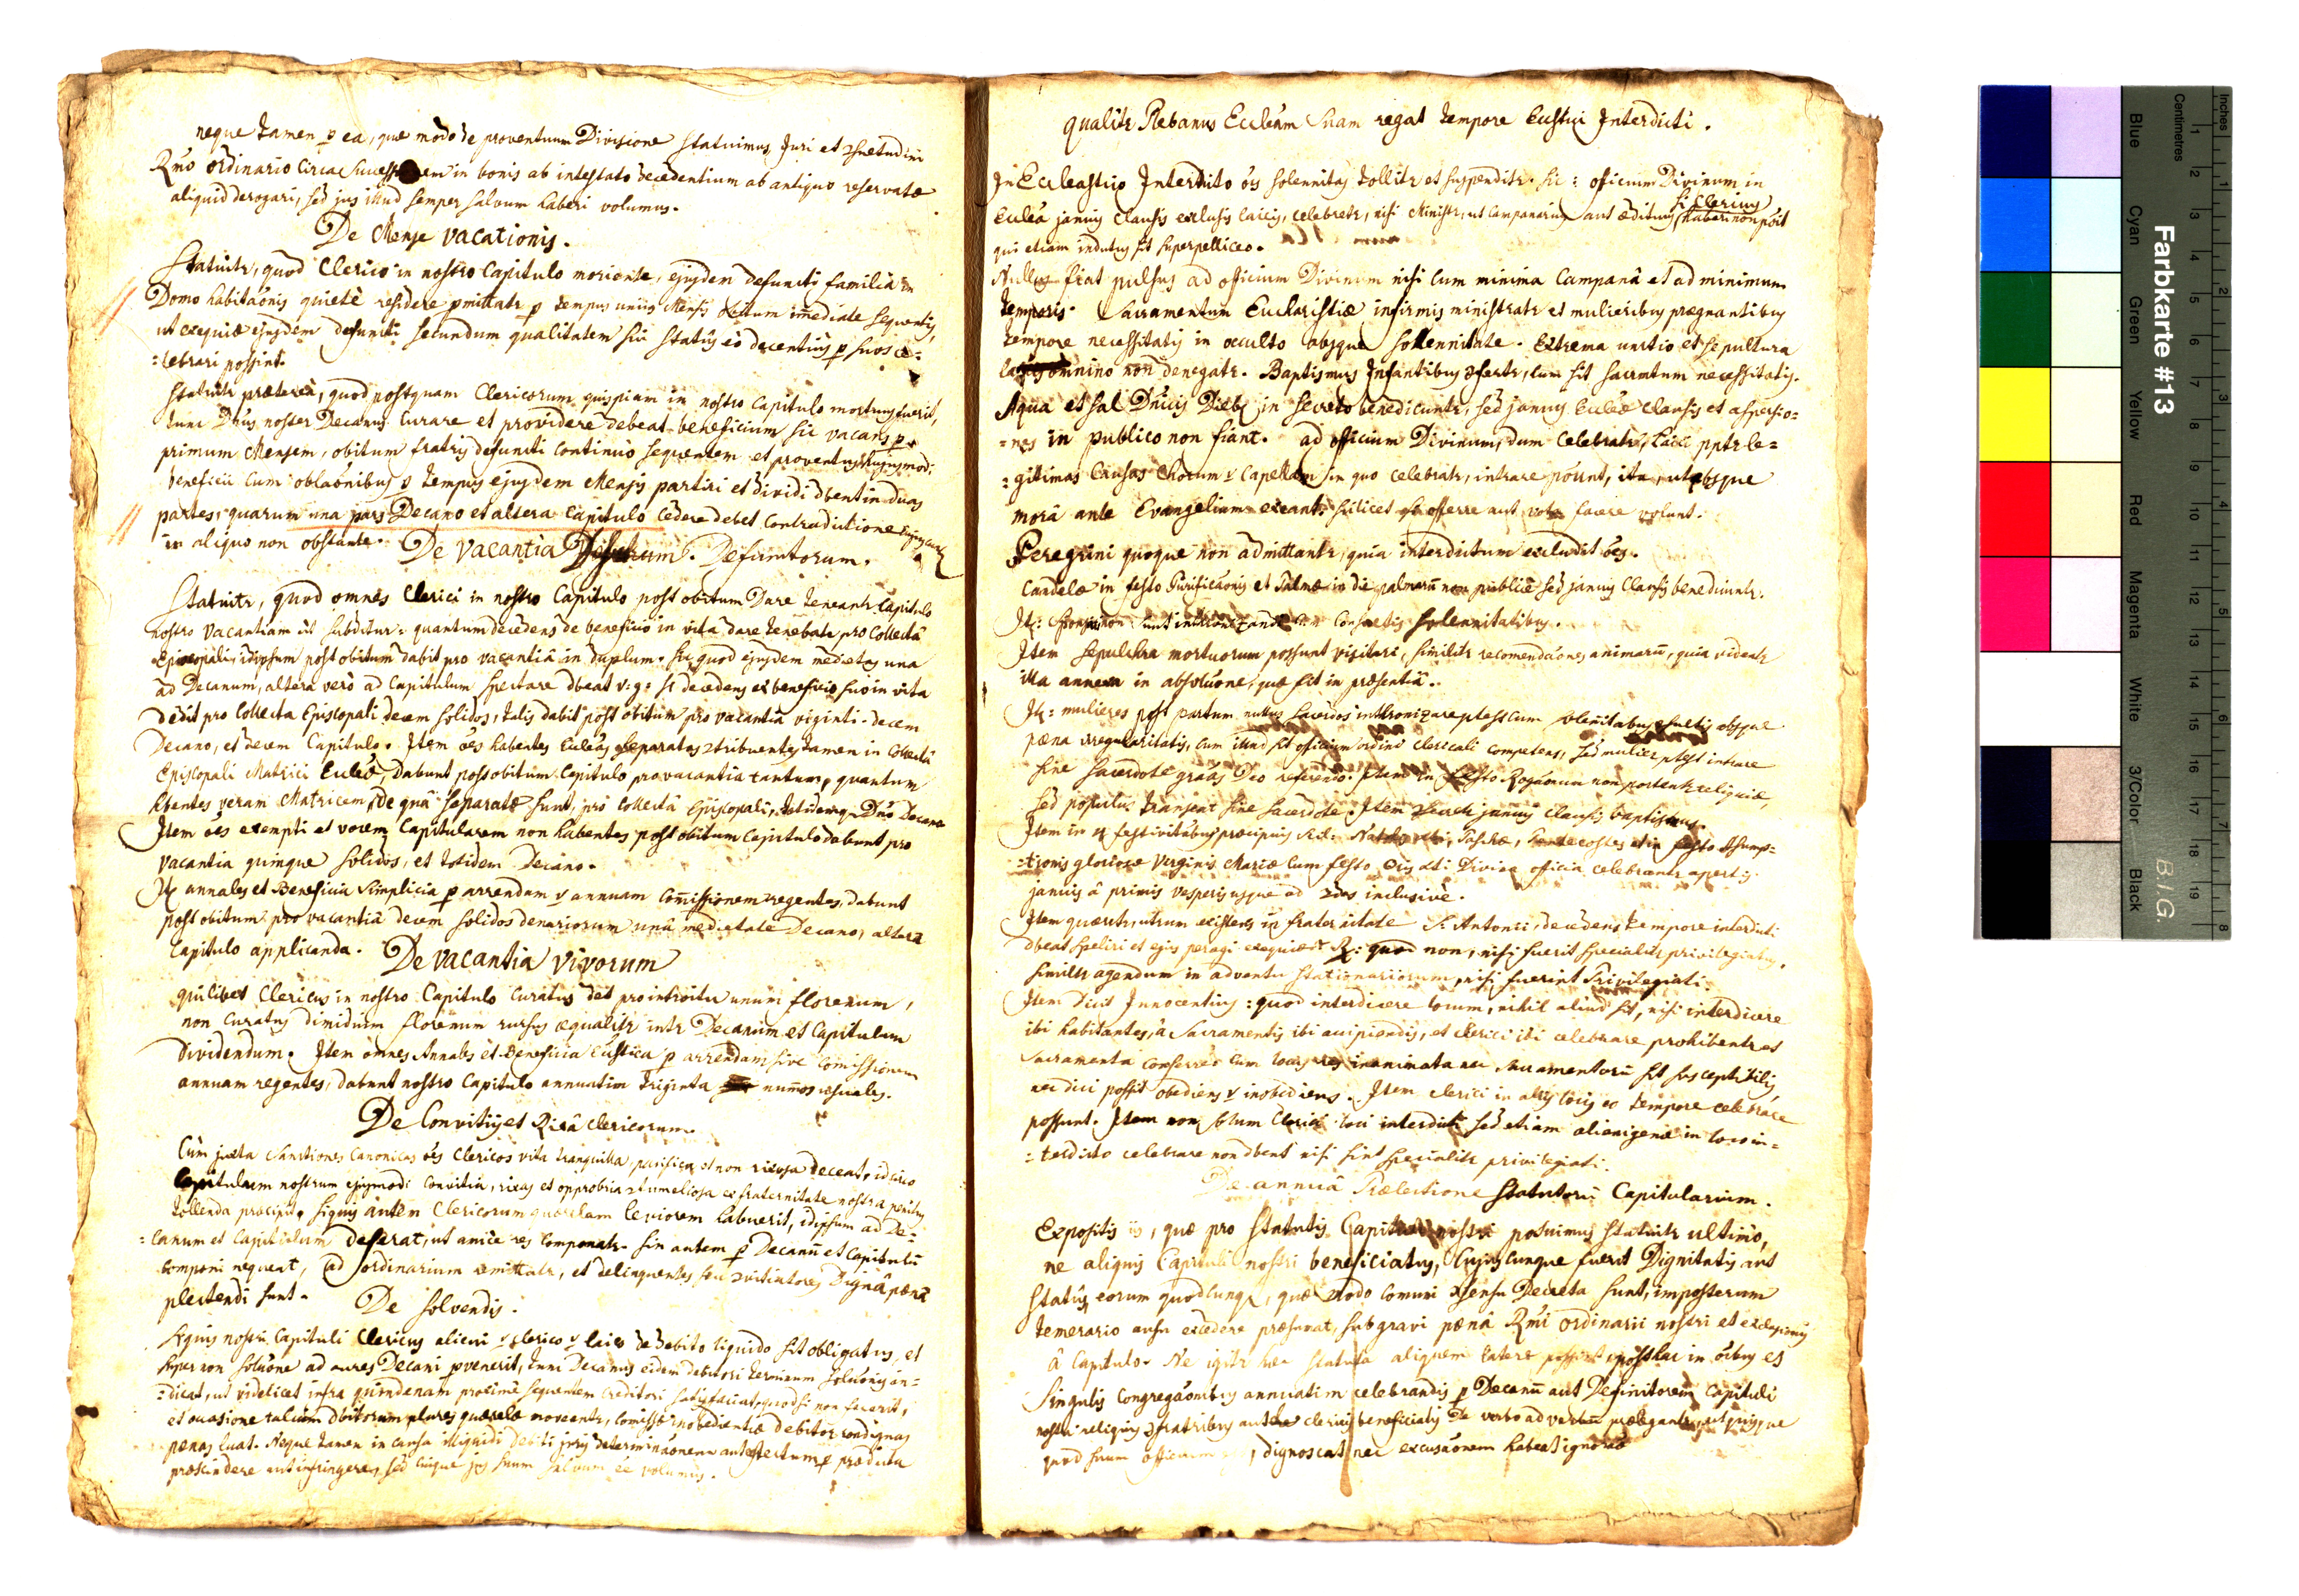 neque tamen p ea, quæ modo de proventuum Divisione statuimus, Juri et ɔsuetudini
Rm̃o ordinario circa in bonis ab intestato decedentium ab antiquo reservatæ
aliquid derogari, sed jus illud semper salvum haberi volumus.
De Mense vacationis.
Statuitr, quod Clerico in nostro Capitulo moriente, ejusdem defuncti familia in
Domo habitaõnis quietè residere pmittatr p tempus unius Mensis obitum im̃ediate sequentis,
ut exequiæ ejusdem defuncti secundum qualitatem sui statûs eò decentiùs p suos ce=
=lebrari possint.
Statuitr prætereà, quod postquam Clericorum quispiam in nostro Capitulo mortuus fuerit,
tunc Dñus noster Decanus curare et providere debeat beneficium sic vacans p
primum Mensem, obitum fratris defuncti continuò sequentem et proventus hujusmodi
beneficii cum oblaõnibus p tempus ejusdem Mensis partiri et dividi dbent in duas
partes, quarum una pars Decano et altera Capitulo cedere debet contradictione
in aliquo non obstante. De vacantia Defunctorum.
Statuitr, quod omnes Clerici in nostro Capitulo post obitum Dare teneantr Capitulo
nostro vacantiam ut subditur: quantum decedens de beneficio in vitâ dare tenebatr pro Collectâ
Episcopali, idipsum post obitum dabit pro vacantiâ in duplum. sic quod ejusdem medietas una
ad Decanum, altera verò ad Capitulum spectare dbeat v: g: si decedens ex beneficio suo in vita
dedit pro Collecta Episcopali decem solidos, talis dabit post obitum pro vacantiâ viginti. decem
Decano, et decem Capitulo. Item oẽs habentes Eccleãs separatas ɔtribuentes tamen in Collectâ
Episcopali Matrici Eccleæ, dabunt post obitum Capitulo pro vacantia tantum, quantum
hbentes veram Matricem, de quâ separatæ sunt, pro collectâ Episcopali, totidemq Dño Decano
Item oẽs exempti et vocem Capitularem non habentes post obitum Capitulo dabunt pro
vacantia quinque solidos, et totidem Decano.
It annales et Beneficia simplicia p arrendam v annuam Com̃issionem regentes, dabunt
post obitum pro vacantiâ decem solidos denariorum unâ medietate Decano, alterâ
Capitulo applicanda. De vacantia vivorum
quilibet Clericus in nostro Capitulo Curatus det pro introitu unum florenum,
non Curatus dimidium florenum rursus æqualitr intr Decanum et Capitulum
dividendum. Item omnes Annales et Beneficia p arrendam sive Comissionem
annuam regentes, dabunt nostro Capitulo annuatim triginta num̃os usuales.
De Convitijs et Rixâ clericorum.
Cùm juxta Sanctiones Canonicas oẽs Clericos vita tranquilla, pacifica, et non rixosa deceat, idcirco
Capitulum nostrum ejusmodi Convitia, rixas et opprobria ɔtumeliosa ex fraternitate nostra penitus
tollenda præcipit. siquis autem Clericorum querelam leviorem habuerit, idipsum ad De=
=canum et Capitulum deferat, ut amicè res componatr. sin autem p Decanũ et Capitulũ
componi nequeat, ad ordinarium remittatr, et delinquentes seu ɔvitiatores Dignâ pænâ
plectendi sunt. De Solvendis.
siquis nostri Capituli Clericus alicui v clerico v laico de debito liquido sit obligatus, et
super non soluõne ad aures Decani pvenerit, tunc Decanus eidem debitori terminum soluõnis
=dicat, ut videlicet infra quindenam proximè sequentem Creditori satisfaciat, quod si non fecerit,
et occasione talium dbitorum plures quærelæ moveantr, comissæ inobedientiæ debitor condignas
pænas luat. Neque tamen in causa illiquidi debiti juris determinaõnem
præscindere aut infringere, sed cuique jus suum salvum eẽ volumus.
qualitr Plebanus Eccleãm suam regat tempore Ecclstici Interdicti.
In Ecclesastico Interdicto oĩs solennitas tollitr et suspenditr. sic: officium Divinum in
si Clericus
Eccleã januis clausis exclusis laicis, celebretr, nisi Ministr, ut Campanarius aut ædituus haberi non põit
qui etiam indutus sit superpelliceo.
Nullus fiat pulsus ad officium Divinum nisi cum minima Campanâ et ad minimum
temporis. Sacramentum Eucharistiæ infirmis ministratr et mulieribus prægnantibus
tempore necessitatis in occulto absque sollennitate. Extrema unctio et sepultura
omnino non denegatr. Baptismus Infantibus ɔfertr, cum sit sacrmtum necessitatis.
Aqua et sal Dñicis Dieb in secreto benedicuntr, sed januis Eccleæ clausis et aspersio=
=nes in publico non fiant. ad officium Divinum, dum celebratr, laici pptr le=
=gitimas Causas Chorum v Capellam in quo celebratr, intrare põunt, ita, ut absque
morâ ante Evangelium exeant, scilicet offerre aut vota facere volunt.
Peregrini quoque non admittantr, quia interdictum excludit oẽs.
Candelæ in festo Purificaõnis et Palmæ in die palmarũ non publicè sed januis clausis benedicuntr.
It: sponsæ non sunt cum consuetis solennitatibus.
Item sepulchra mortuorum possunt visitari, similitr recomendaõnes animarũ, quia videntr
illa annexa in absoluõne, quæ fit in præsentiâ.
It: mulieres post partum nullus sacerdos inthronizare ptest cum absque
pæna irregularitatis, cum illud sit officium ordini clericali competens, sed mulier ptest intrare
sine sacerdote graãs Deo referendo. Item in festo Rogaõnum non portentr reliquiæ,
sed populus transeat sine sacerdote. Item januis clausis baptismus.
Item in 4 festivitãbus præcipuis scil: Paschæ, Pentecostes et in festo Assump=
=tionis gloriosæ Virginis Mariæ cum festo Divina officia celebrantr apertis
januis à primis vesperis usque ad 2das inclusivè.
Item quæritr, utrum existens in fraternitate S. Antonii, decedens tempore interdicti
dbeat speliri et ejus peragi exequiæ? R: quod non, nisi fuerit specialitr privilegiatus,
similitr agendum in adventu stationariorum, nisi fuerint Privilegiati.
Item dicit Innocentius: quod interdicere locum, nihil aliud sit, nisi interdicere
ibi habitantes, à Sacramentis ibi accipiendis, et clerici ibi celebrare prohibentr et
sacramenta conferre: cum locus res inanimata nec sacramentorũ sit susceptibilis,
nec dici possit obediens v inobediens. Item clerici in alijs locis eo tempore celebrare
possunt. Item non solum Clerici loci interdicti sed etiam alienigenæ in loco in=
=terdicto celebrare non dbent nisi sint specialitr privilegiati.
De annuâ Prælectione Statutorũ Capitularium.
Expositis iis, quæ pro statutis Capituli nostri posuimus statuitr ultimò,
ne aliquis Capituli nostri beneficiatus, cujuscunque fuerit Dignitatis aut
statûs, eorum quodcunq, quæ modo comuni ɔsensu Decreta sunt, imposterum
temerario ausu excedere præsumat, sub gravi pænâ Rm̃i ordinarii nostri et exclusionis
à Capitulo. Ne igitr hæc statuta aliquem latere possint, posthac in oĩbus et
singulis congregaõnibus annuatim celebrandis p Decanũ aut Definitorem Capituli
nostri reliquis ɔfratribus clericis beneficiatis de verbo ad verbum prælegantr, ut quisque
quod suum officium, dignoscat nec excusaõnem habeat